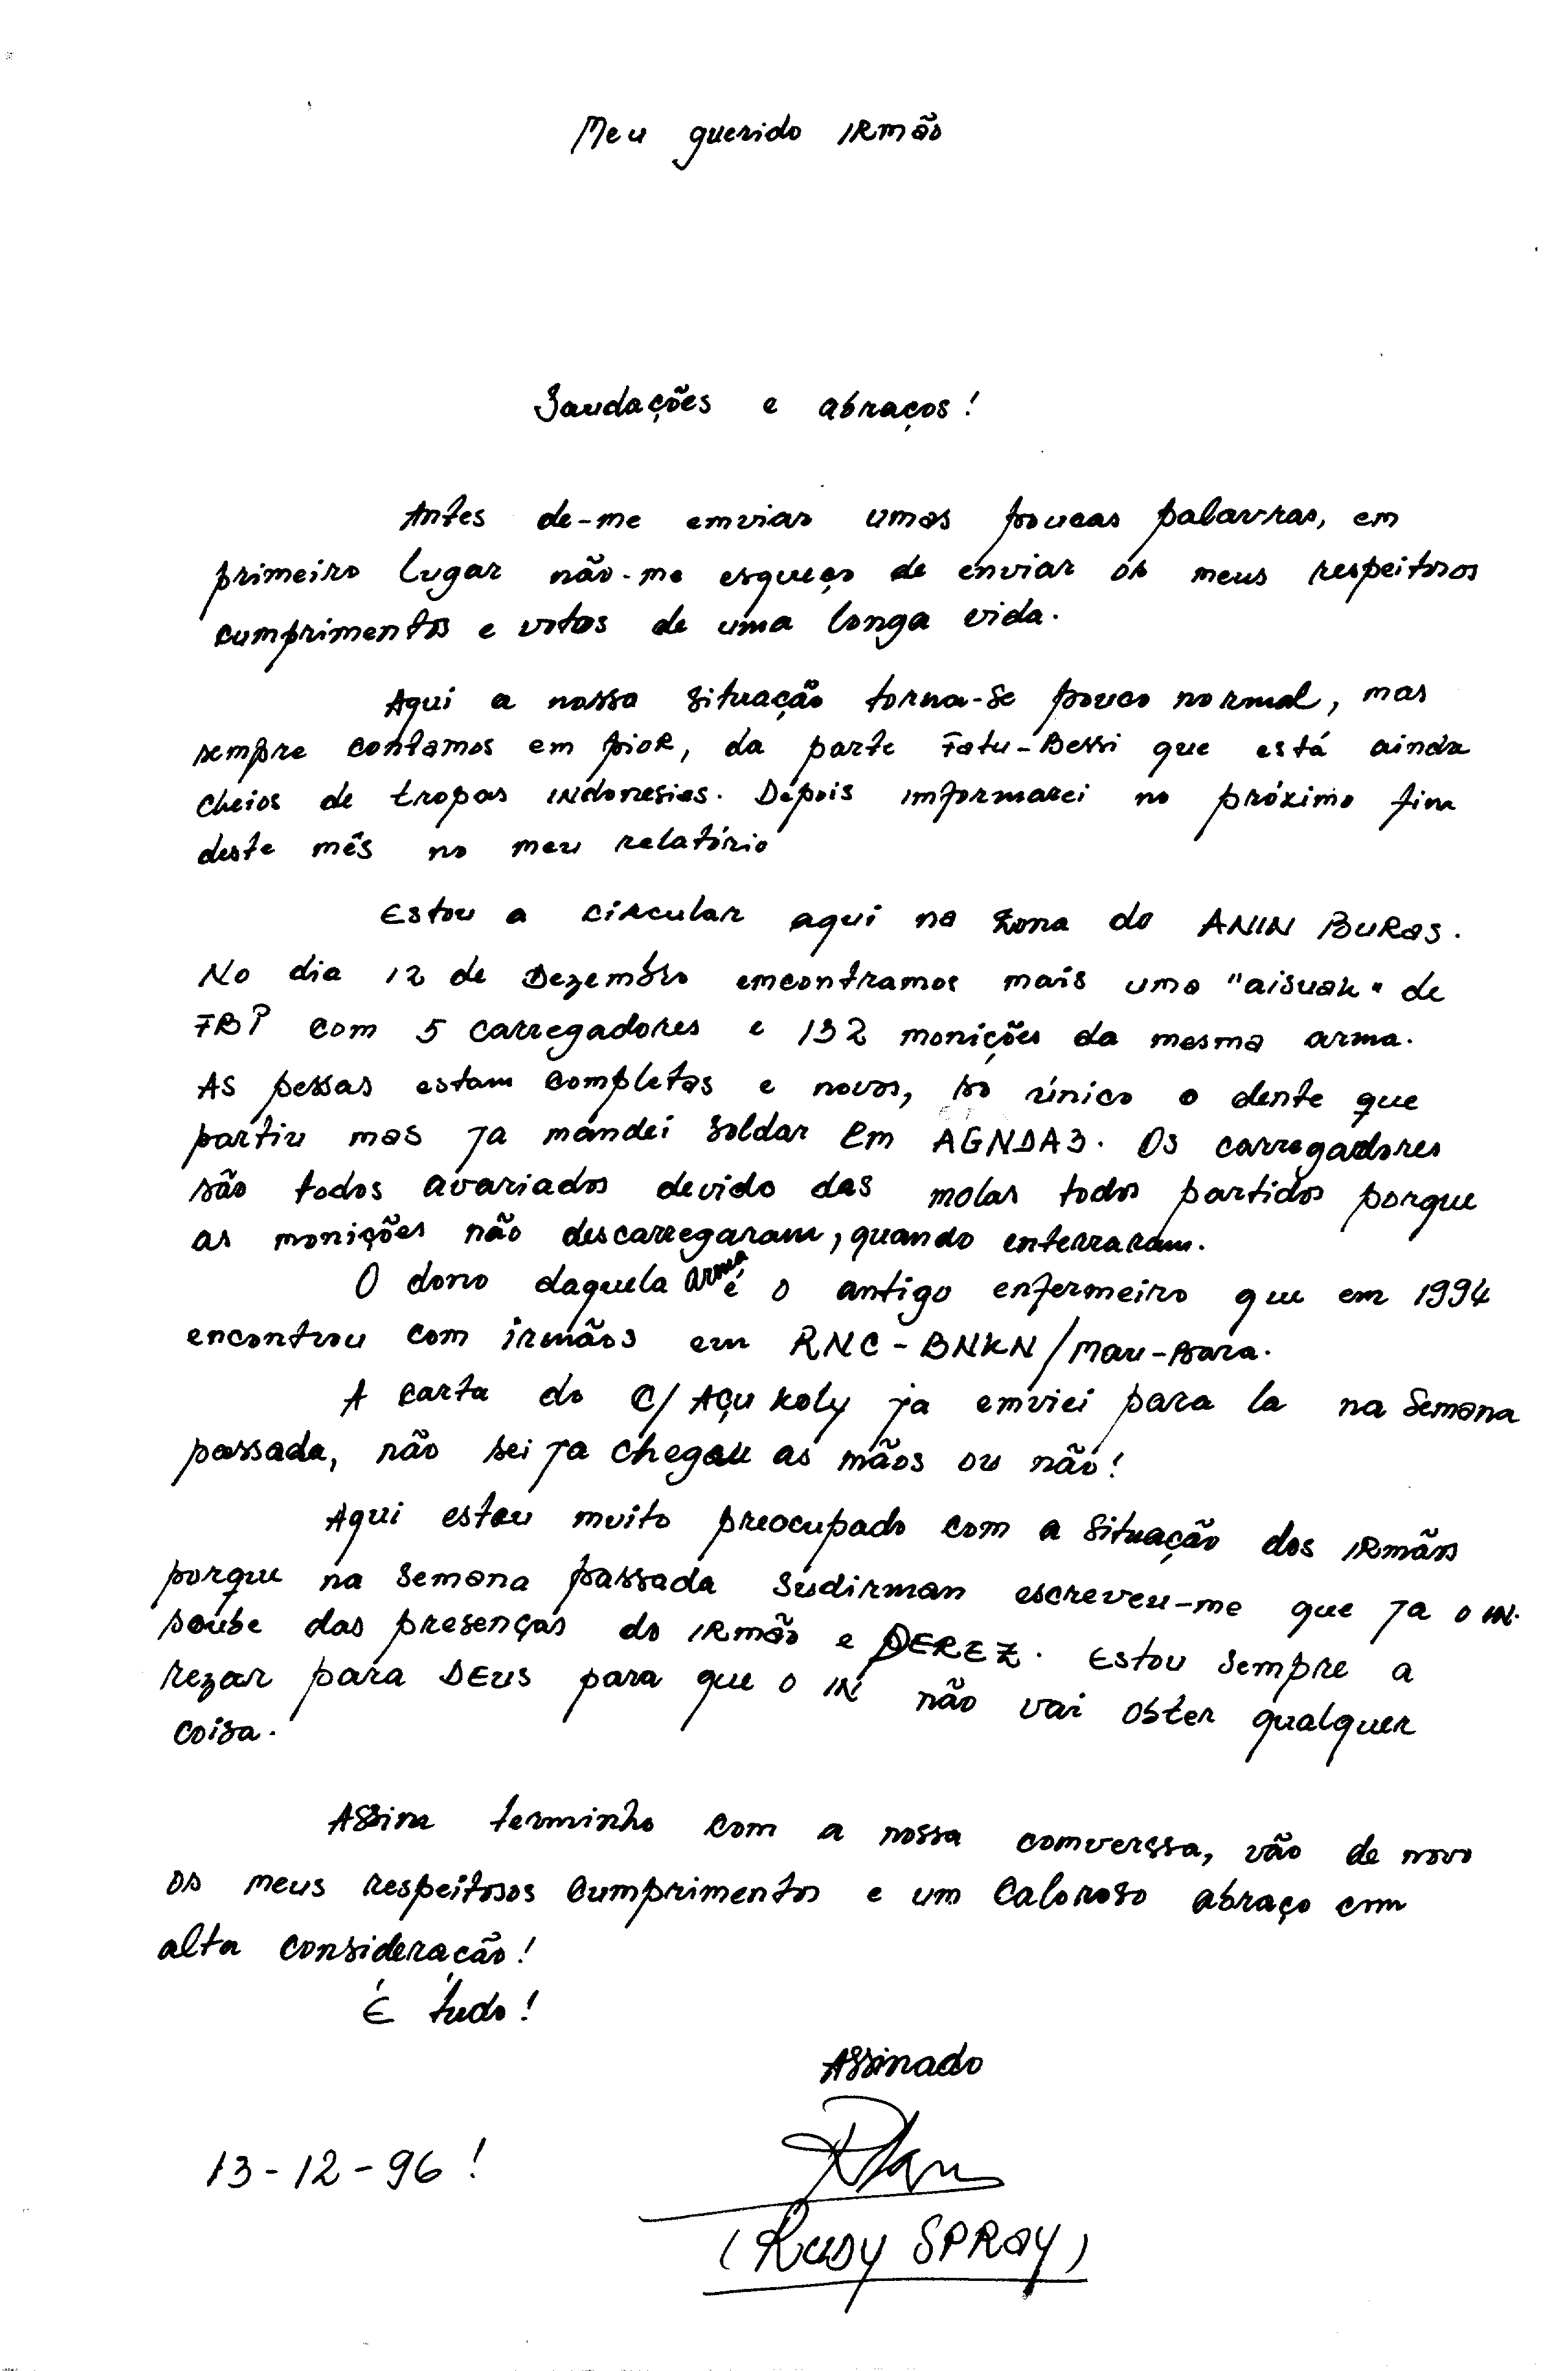 Meu querido IRmão
Saudações e abraços!
Antes de-me emviar umas poucas palavras, em
primeiro lugar não-me esqueço de enviar os meus respeitosos
cumprimentos e votos de uma longa vida.
Aqui a nossa situação torna-se pouco normal, mas
sempre contamos em pioR, da parte Fatu-Bessi que está ainda
cheios de tropas INdonesias. Depois imformarei no próximo fim
deste mês no meu relatório
Estou a circular aqui na zona do ANIN BURas.
No dia 12 de Dezembro emcontramos mais uma "aisuak" de
FBP com 5 carregadores e 132 monições da mesma arma.
As pessas estam completas e novas, so único o dente que
partiu mas ja mandei soldar em AGNDA3. Os carregadores
são todos avariados devido das molas todos partidos porque
as monições não descarregaram, quando enterraram.
O dono daquela arma é o antigo enfermeiro que em 1994
encontrou com irmãos em RNC-BNKN/Mau-Bara.
A carta do C/ AÇu koly ja emviei para la na semana
passada, não sei ja chegou as mãos ou não!
Aqui estou muito preocupado com a situação dos IRmãos
porque na semana passada Sudirman escreveu-me que ja o IN.
soube das presenças do IRmão e DEREZ. Estou sempre a
rezar para DEus para que o IN não vai obter qualquer
coisa.
Assim terminho com a nossa comverssa, vão de novo
os meus respeitosos cumprimentos e um caloroso abraço com
alta consideração!
É tudo!
Assinado
13-12-96!
(Rudy SPRay)